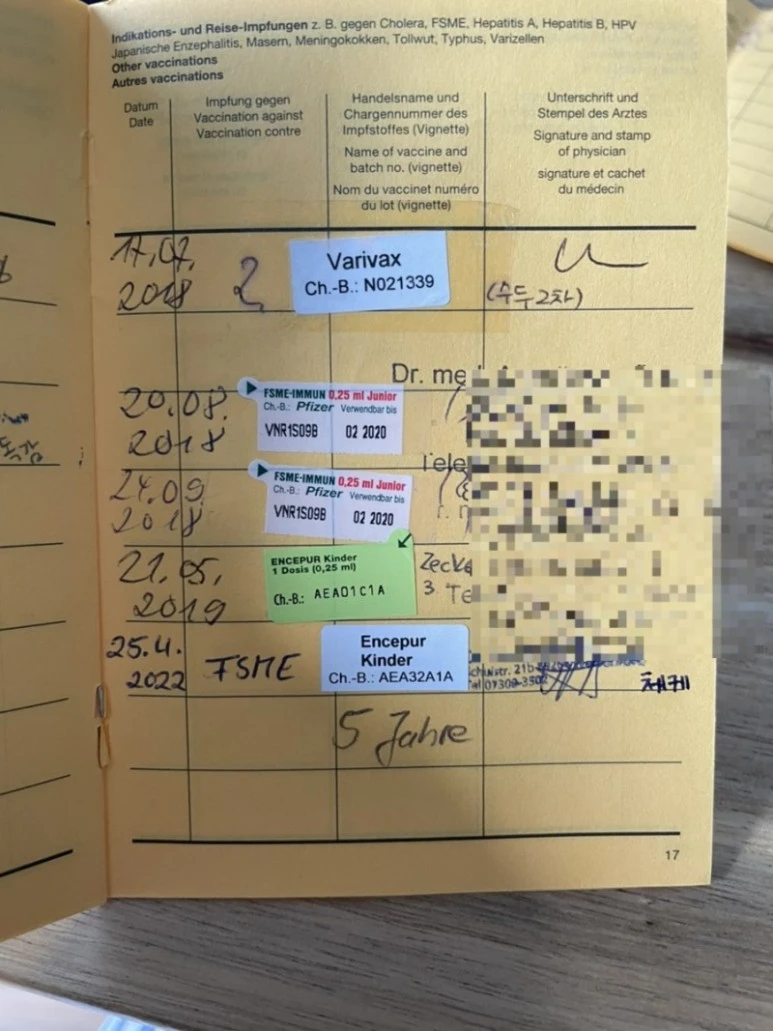 Indikations- und Reise-Impfungen z. B. gegen Cholera, FSME, Hepatitis A, Hepatitis B, HPV
Japanische Enzephalitis, Masern, Meningokokken, Tollwut, Typhus, Varizellen
Other vaccinations
Autres vaccinations
Datum
Date
Impfung gegen
Vaccination against
Vaccination contre
Handelsname und
Chargennummer des
Impfstoffes (Vignette)
Name of vaccine and
batch no. (vignette)
Nom du vaccinet numéro
du lot (vignette)
Unterschrift und
Stempel des Arztes
Signature and stamp
of physician
signature et cachet
du médecin
17.07.
2018
2
Varivax
Ch.-B.: N021339
(수두 2차)
Dr. me
20.08.
2018
FSME-IMMUN 0,25 ml Junior
Ch.-B.: Pfizer Verwendbar bis
VNR1S09B 02 2020
Tele
24.09
2018
FSME-IMMUN 0,25 ml Junior
Ch.-B.: Pfizer Verwendbar bis
VNR1S09B 02 2020
21.05.
2019
ENCEPUR Kinder
1 Dosis (0,25 ml)
Ch.-B.: AEA01C1A
Zecke
3. Te
25.4.
2022
FSME
Encepur
Kinder
Ch.-B.: AEA32A1A
5 Jahre
17